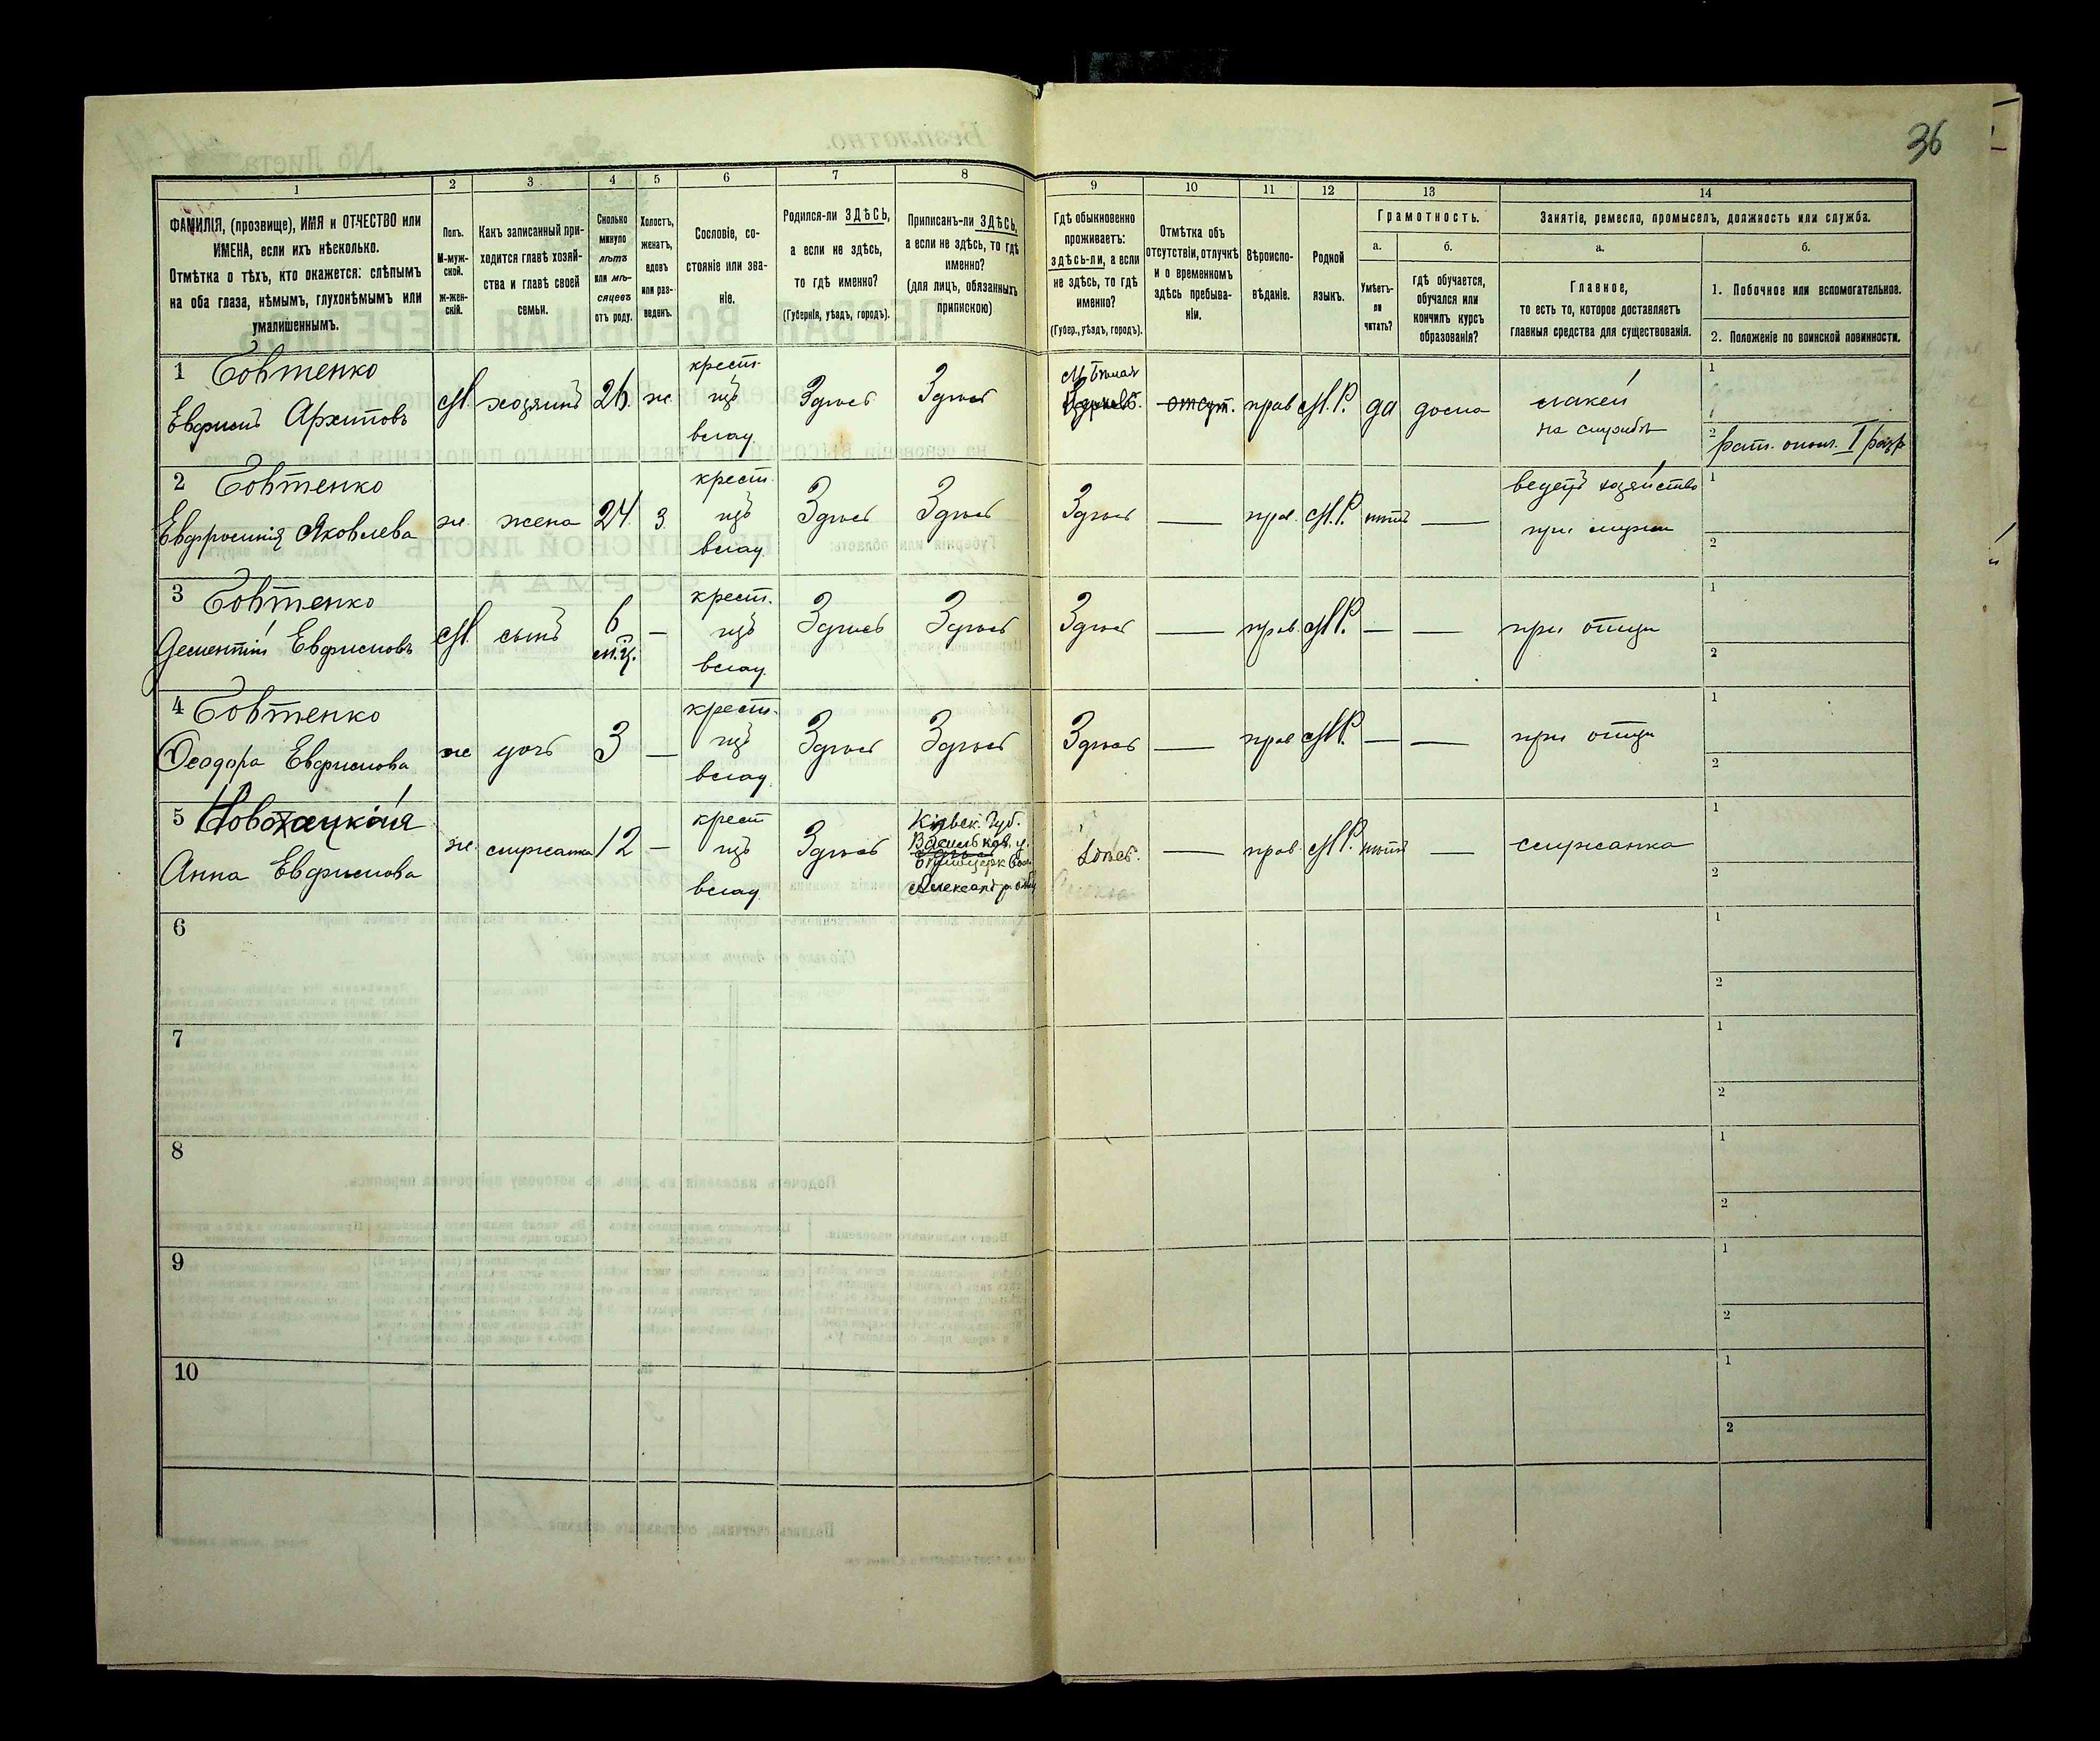 36
1
2
3
4
5
6
7
8
9
10
11
12
13
14
ФАМИЛІЯ, (прозвище), ИМЯ и ОТЧЕСТВО или
ИМЕНА, если ихъ нѣсколько.
Отмѣтка о тѣхъ, кто окажется: слѣпымъ
на оба глаза, нѣмымъ, глухонѣмымъ или
умалишеннымъ.
Полъ.
М-муж-
ской.
ж-жен-
скій.
Какъ записанный при-
ходится главѣ хозяй-
ства и главѣ своей
семьи.
Сколько
минуло
лѣтъ
или мѣ-
сяцевъ
отъ роду.
Холостъ,
женатъ,
вдовъ
или раз-
веденъ.
Сословіе, со-
стояніе или зва-
ніе.
Родился-ли ЗДѢСЬ,
а если не здѣсь,
то гдѣ именно?
(Губернія, уѣздъ, городъ).
Приписанъ-ли ЗДѢСЬ,
а если не здѣсь, то гдѣ
именно?
(для лицъ, обязанныхъ
припискою)
Гдѣ обыкновенно
проживаетъ:
здѣсь-ли, а если
не здѣсь, то гдѣ
именно?
(Губер., уѣздъ, городъ).
Отмѣтка объ
отсутствіи, отлучкѣ
и о временномъ
здѣсь пребыва-
ніи.
Вѣроиспо-
вѣданіе.
Родной
языкъ.
Грамотность.
а.
Умѣетъ-
ли
читать?
б.
гдѣ обучается,
обучался или
кончилъ курсъ
образованія?
Занятіе, ремесло, промыселъ, должность или служба.
а.
Главное,
то есть то, которое доставляетъ
главныя средства для существованія.
б.
1. Побочное или вспомогательное.
2. Положеніе по воинской повинности.
1 Бовтенко
Евфимъ Архиповъ
М.
хозяинъ
26
ж.
крест.
изъ
влад.
Здѣсь
Здѣсь
М. Бѣлая
отсут.
прав
М.Р.
да
дома
лакей
на службѣ
1
2 рат. опол. I разр
2 Бовтенко
Евфросинія Яковлева
ж.
жена
24
З.
крест.
изъ
влад.
Здѣсь
Здѣсь
Здѣсь
—
прав.
М.Р.
нѣтъ
—
ведетъ хозяйство
при мужѣ
1
2
3 Бовтенко
Дементій Евфимовъ
М.
сынъ
6
м.ц.
—
крест.
изъ
влад.
Здѣсь
Здѣсь
Здѣсь
—
прав.
М.Р.
—
—
при отцѣ
1
2
4 Бовтенко
Ѳеодора Евфимова
ж
дочь
3
—
крест.
изъ
влад.
Здѣсь
Здѣсь
Здѣсь
—
прав
М.Р.
—
—
при отцѣ
1
2
5
Анна Евфимова
ж.
служанка
12
—
крест
изъ
влад.
Здѣсь
Кіевск. Губ.
Васильков. у.
Здѣсь.
—
прав.
М.Р.
нѣтъ
—
служанка
1
2
6
1
2
7
1
2
8
1
2
9
1
2
10
1
2